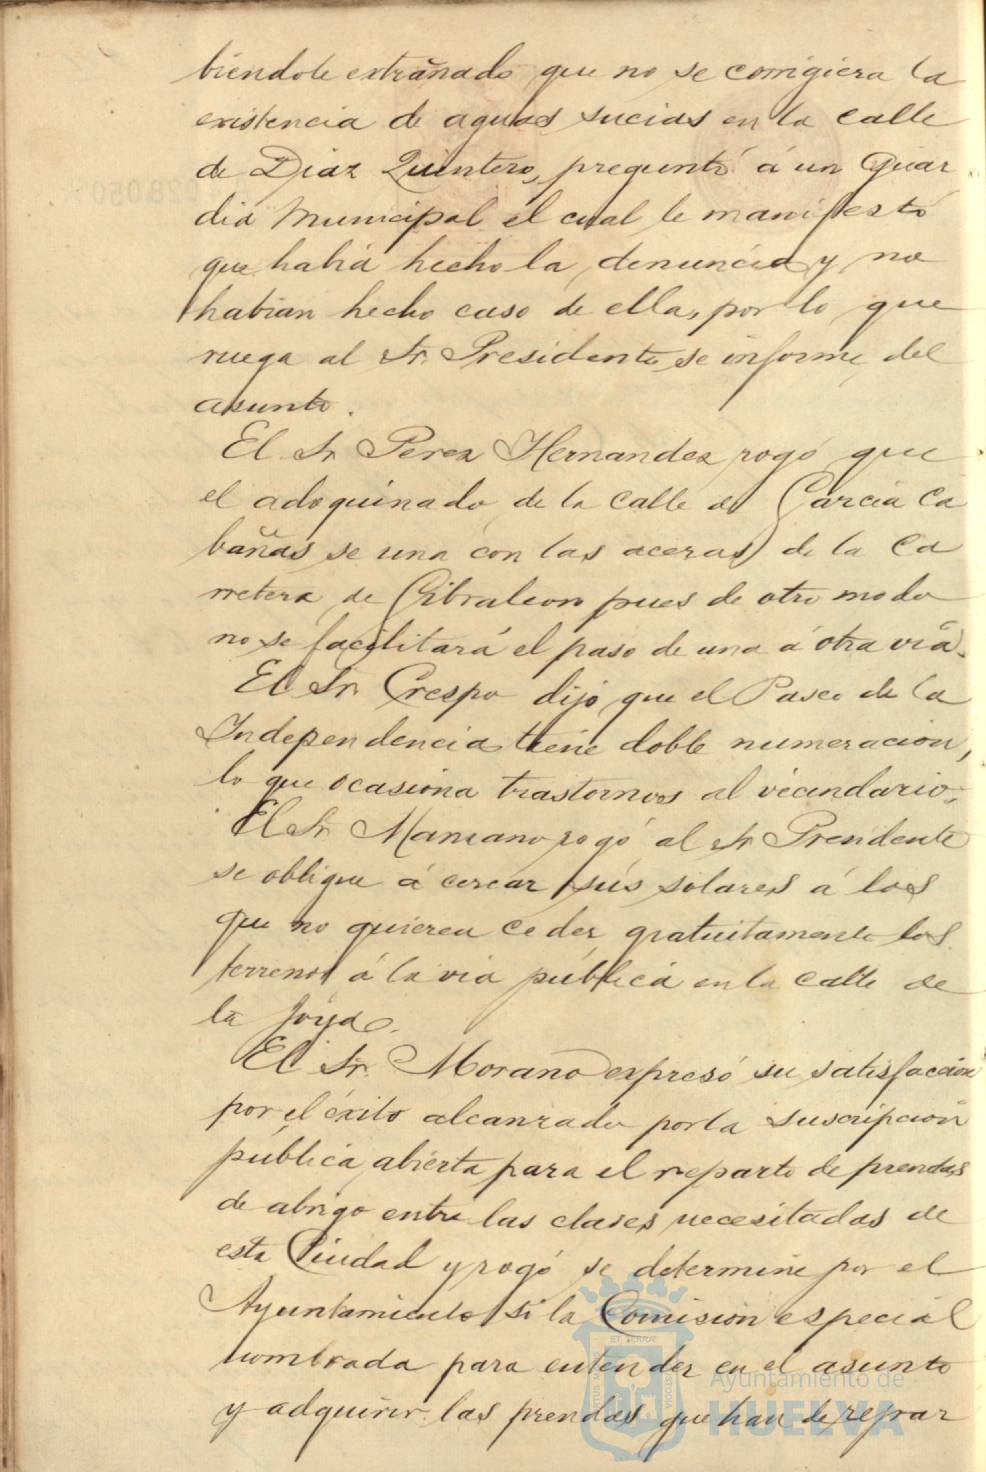 biendole extrañado que no se corrigiera la
existencia de aguas sucias en la calle
de Diaz Quintero, preguntó á un Guar
dia Municipal el cual le manifestó
que habia hecho la denuncia y no
habian hecho caso de ella, por lo que
ruega al Sr. Presidente se informe del
asunto.
El Sr. Perez Hernandez rogó que
el adoquinado de la calle de Garcia Ca
bañas se una con las aceras de la Ca
rretera de Gibraleon pues de otro modo
no se facilitará el paso de una á otra via.
El Sr. Crespo dijo que el Paseo de la
Independencia tiene doble numeracion,
lo que ocasiona trastornos al vecindario.
El Sr. Manzano rogó al Sr. Presidente
se obligue á cercar sus solares á los
que no quieren ceder gratuitamente los
terrenos á la via pública en la calle de
la Joya.
El Sr. Morano expresó su satisfaccion
por el éxito alcanzado por la suscripcion
pública abierta para el reparto de prendas
de abrigo entre las clases necesitadas de
esta Ciudad y rogó se determine por el
Ayuntamiento si la Comision especial
nombrada para entender en el asunto
y adquirir las prendas que han de repar
Ayuntamiento de
HUELVA